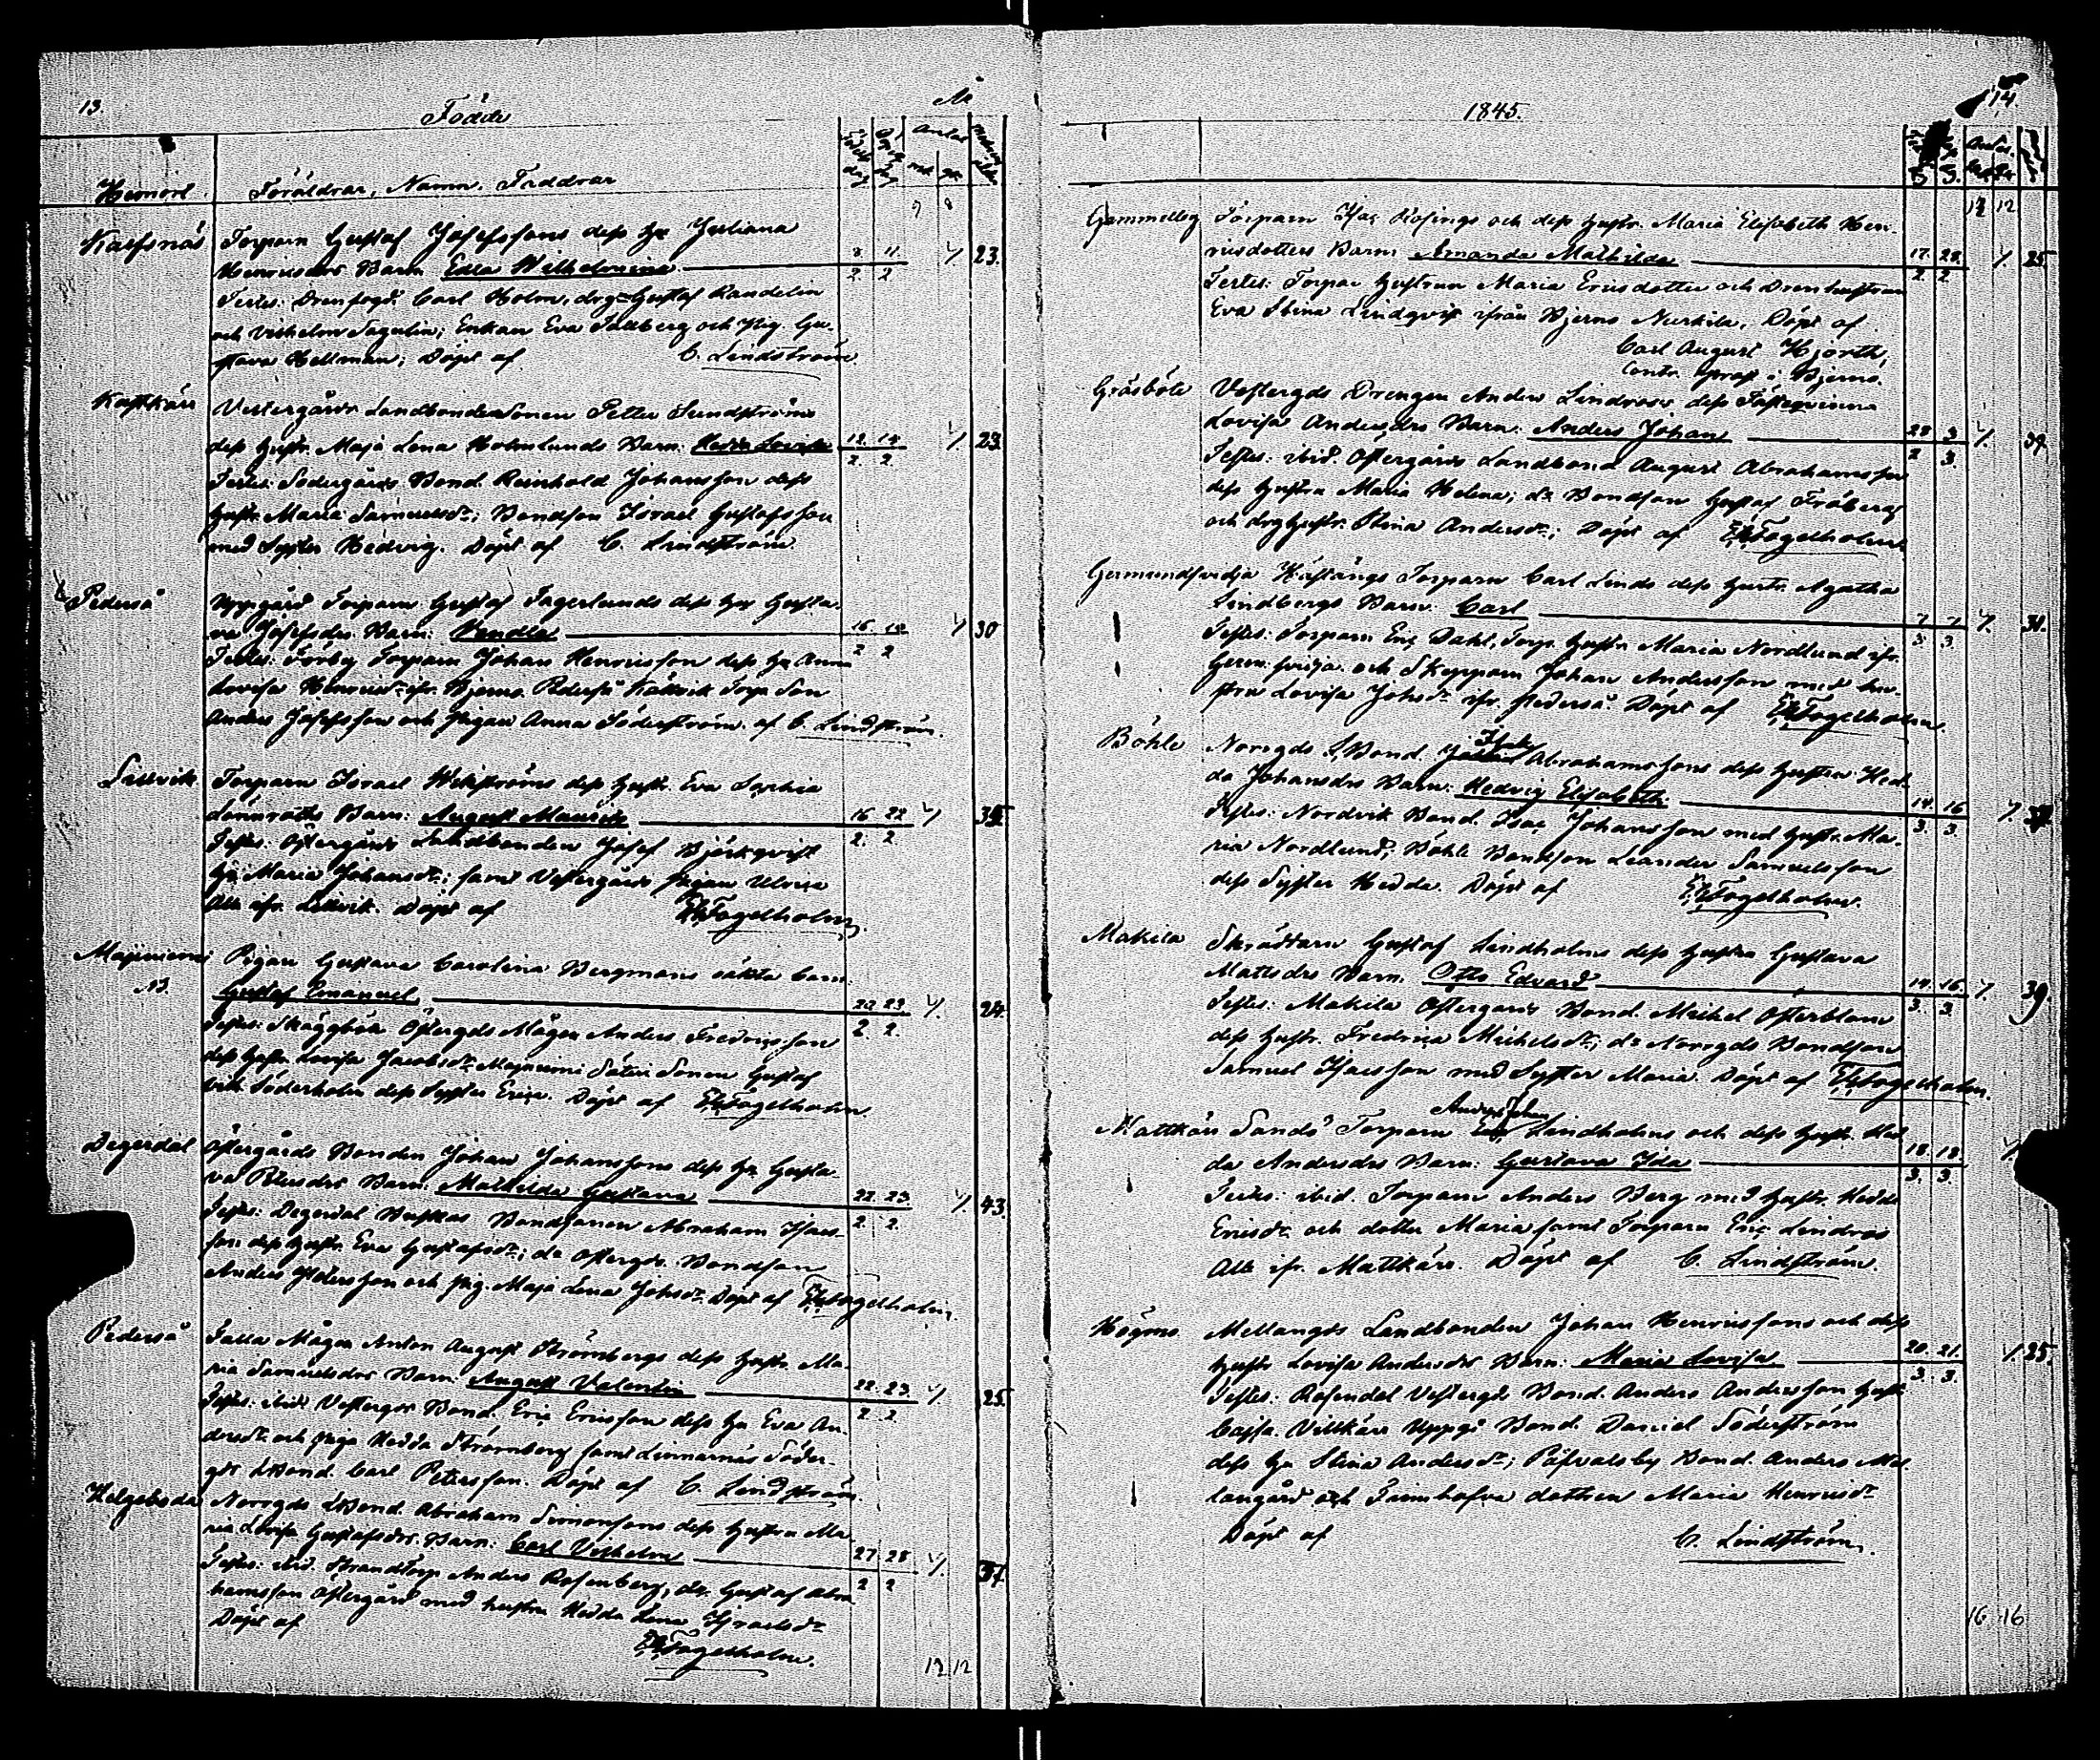 13. Födde År
Hemort. Föräldrar, Namn, Faddrar
Födelse dag Antal mk qk
9 8
Kaefsnäs Torparn Gustaf Josefssons dess hu Juliana
Henricsdrs Barn Edla Wilhelmina 8/2 11/2 1/. 23.
Testes: Carl Holm, drg Gustaf Randelin
och Vilhelm Fagerlin; Enkan Eva Sallberg och Pig. Gu-
stava Hellman; Döpt af C. Lindström
Kastkärr Vestergårds Landbonde Sonen Petter Sundströms
dess hustr. Maja Lena Holmlunds Barn: Hedda Lovisa 12/2 14/2 1/. 23
Testes: Södergårds Bond. Reinhold Johansson dess
hustr. Maria Samuelsdr; Bondson Israel Gustafsson
med Syster Hedvig. Döpt af C. Lindström.
Pederså Uppgård Torparn Gustaf Fagerlunds dess hu Gusta-
va Josefsdrs Barn: Vendla 16/2 18/2 1/ 30
Testes: Förby Torparn Johan Henricsson dess hu Anna
Lovisa Henricsdr ifr. Bjerno Pederså Torp. Son
Anders Josefsson och Pigan Anna Söderström. af C. Lindström.
Lillvik Torparn Israel Wikströms dess hustr. Eva Sophia
Lönnroths Barn: August Maurits 16/2 22/2 1/
Testes: Östergårds Landbonden Josef Björkqvist
hu Maria Johansdr; samt Vestergårds pigan Ulrica
Alla ifr. Lillvik. Döpt af Fogelholm.
Majniemi Pigan Gustava Carolina Bergmans oäkta barn.
Gustaf Emanuel 22/2 23/2 1/. 24
Testes: Skäggböle Östergds Mågen Anders Fredricsson
dess hustr. Lovisa Jacobsdr Majniemi Säteri Sonen Gustaf
Vilh. Söderholm dess Syster Erica. Döpt af Fogelholm
Degerdal Östergårds Bonden Johan Johanssons dess hu Gusta-
va Petersdrs Barn: Mathilda Gustava 22/2 23/2 1/. 43.
Testes: Degerdal Bondsonen Abraham Isacs-
son dess hustr. Eva Gustafsdr; do Östergds Bondson
Anders Petersson och pig. Maja Lena Johsdr. Döpt af Fogelholm
Pederså Mågen Anton August Strömbergs dess hustr. Ma-
ria Samuelsdrs Barn: August Valentin 22/2 23/2 1/. 25.
Testes: ibid Vestergds Bond. Eric Ericsson dess hu Eva An-
dersdr och piga Hedda Strömberg samt Linnarnäs Söder-
gds LBond. Carl Petersson. Döpt af C. Lindström.
Helgeboda Norrgds LBond. Abraham Simonssons dess hustru Ma-
ria Lovisa Gustafsdrs Barn: Carl Vilhelm 27/2 28/2 1/. 37.
Testes: ibid. Strandtorp Anders Rosenberg, do. Gustaf Abra-
hamsson Östergård med hustru Hedda Lena Israelsdr
Döpt af Fogelholm.
12 12
1845. 14.
12 12
Gammelby Torparn Isac Rosings och dess hustr. Maria Elisabeth Hen-
ricsdotters Barn: Amanda Mathilda 17/2 28/2 1/. 25
Testes: Torpar hustrun Maria Ericsdotter och Dreng hustrun
Eva Stina Lindqvist ifrån Bjerno Nurkila. Döpt af
Carl August Hjorth,
Contr. prest i Bjerno.
Gräsböle Vestergds Drengen Anders Lindroos dess Fästeqvinna
Lovisa Andersdrs Barn: Anders Johan 28/2 3/3 1/.
Testes: ibid. Östergårds Landbond August Abrahamsson
dess hustru Maria Helena; do Bondson Gustaf Fröberg
och drg hustr. Stina Andersdr; Döpt af Fogelholm
Germundsvedja Torparn Carl Linds dess hustr. Agatha
Lindbergs Barn: Carl 7/3 7/3 1/. 31.
Testes: Torparn Eric Dahl, Torp. hustr. Maria Nordlund ifr.
Germ:svedja och Skepparn Johan Andersson med hu-
stru Lovisa Johsdr ifr. Pederså Döpt af Fogelholm.
Böhle Norrgds L.Bond. Isak Abrahamssons dess hustru Hed-
da Johansdrs Barn: Hedvig Elisabeth 14/3 16/3 1/.
Testes: Nordvik Bond. Isac Johansson med hustr. Ma-
ria Nordlund; Böhle Bondson Leander Samuelsson
dess Syster Hedda. Döpt af Fogelholm.
Makila Skräddarn Gustaf Lindholms dess hustru Gustava
Mattsdrs Barn: Otto Edvard 14/3 16/3 1/. 39.
Testes: Makila Östergårds Bond. Michel Österblom
dess hustr. Fredrica Michelsdr; do Norrgds Bondson
Samuel Isacsson med Syster Maria. Döpt af Fogelholm.
Mattkärr Sandö Torparn Anders Johan Lindholms och dess hustr. Hed-
da Andersdrs Barn: Gustava Ida 18/3 18/3 1/.
Testes: ibid. Torparn Anders Berg med hustr. Hedda
Ericsdr och dotter Maria samt Torparn Eric Lindroos
Alla ifr. Mattkärr. Döpt af C. Lindström.
Högmo Mellangds Landbonden Johan Henricssons och dess
hustr. Lovisa Andersdrs Barn: Maria Lovisa 20/3 21/3 1/. 25.
Testes: Rosendal Vestergds Bond. Anders Andersson hustr
Cajsa. Villkärr Uppgd Bond. Daniel Söderström
dess hu Stina Andersdr; Påfvalsby Bond. Anders Mel-
langård och dottren Maria Henricsdr
Döpt af C. Lindström.
16 16